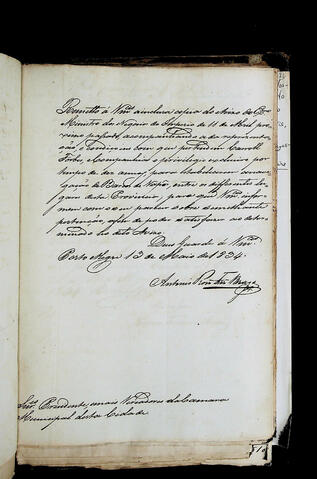 Remetto á Vmces a inclusa copia do Avizo do Exmo
Ministro dos Negocios do Imperio de 11 de Abril pro-
ximo passado, acompanhando a da representa-
ção e condições com que pertendem Carroll
Forbes e Companhia o privilegio exclusivo por
tempo de dez annos, para estabelecerem a nave-
gação de Barcos de Vapor, entre os differentes lu-
gares desta Provincia, para que Vmces infor-
mem com o seu parecer sobre semelhante
pertenção, afim de poder satisfazer ao deter-
minado no dito Avizo.
Deos Guarde á Vmces
Porto Alegre 13 de Maio de 1834.
Antonio Roiz Fez Braga
Snres Presidente, e mais Vereadores da Camara
Municipal desta Cidade